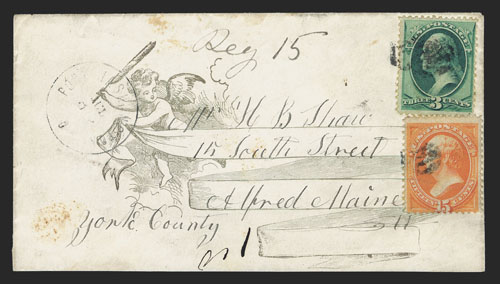 Reg 15
U.S. POSTAGE
THREE CENTS
U.S. POSTAGE
15
Mr H B Shaw
15 South Street
Alfred Maine
York County
1